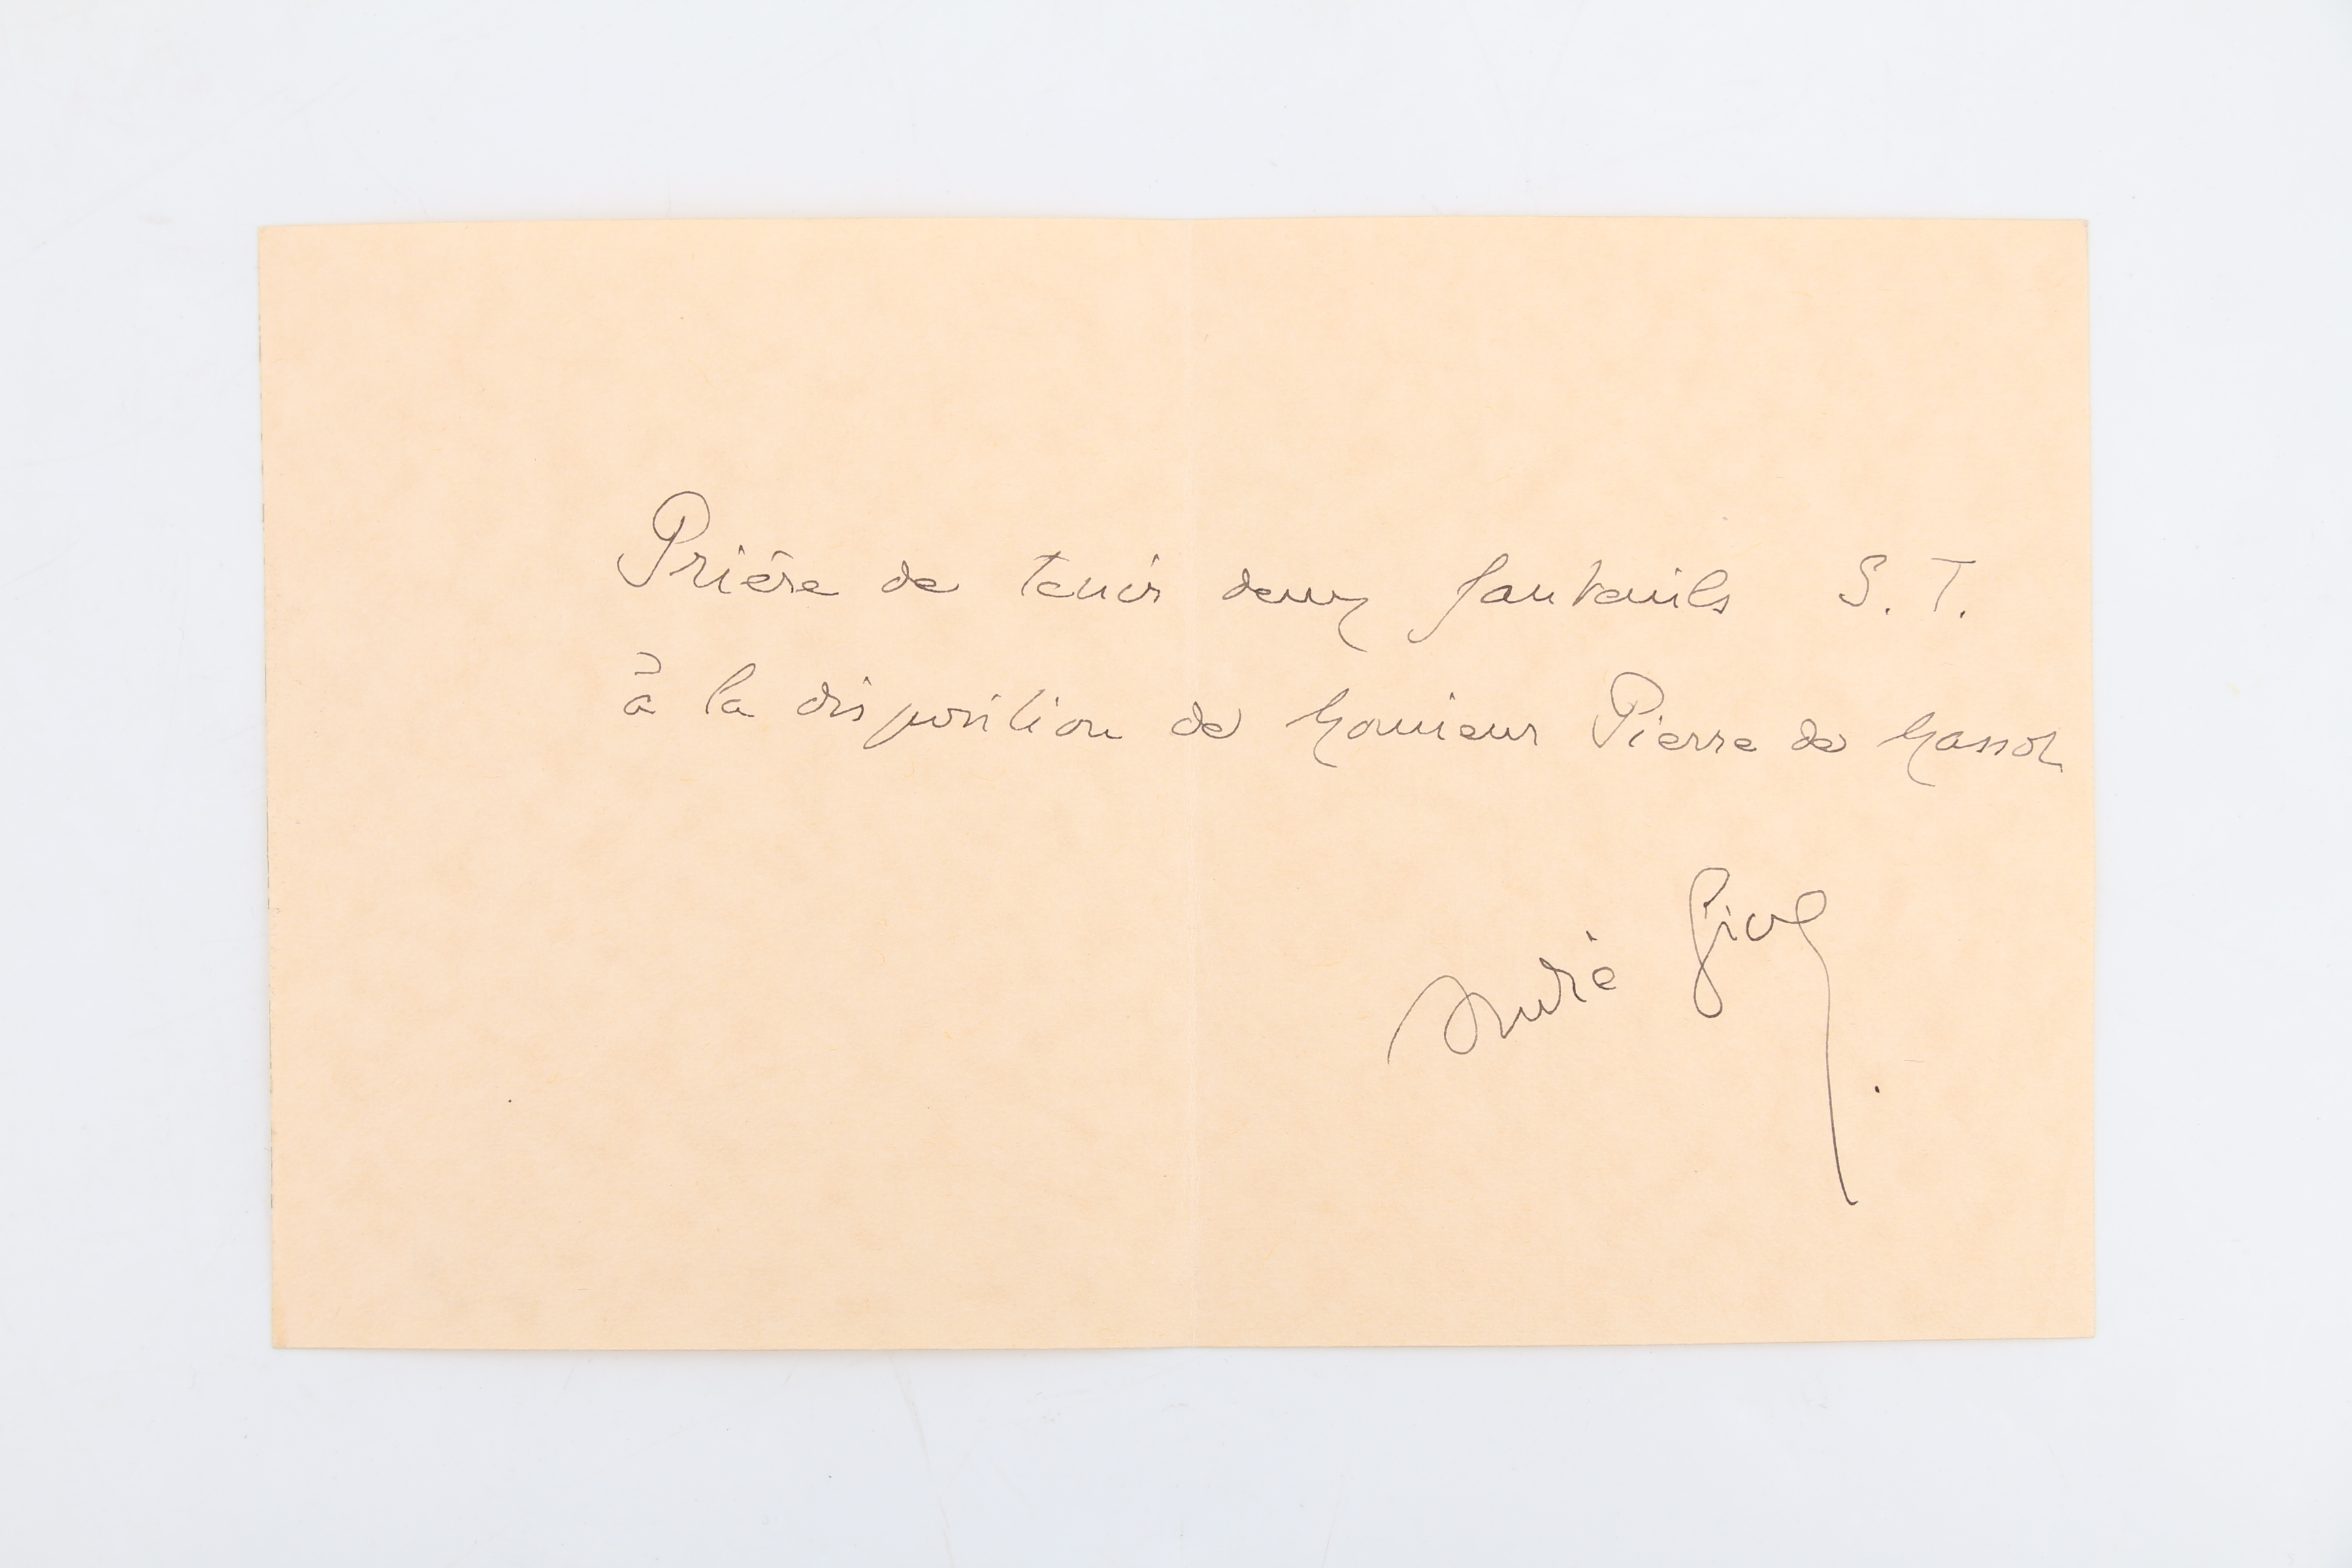 Prière de tenir deux fauteuils S. T.
à la disposition de Monsieur Pierre de Massot
André Gide